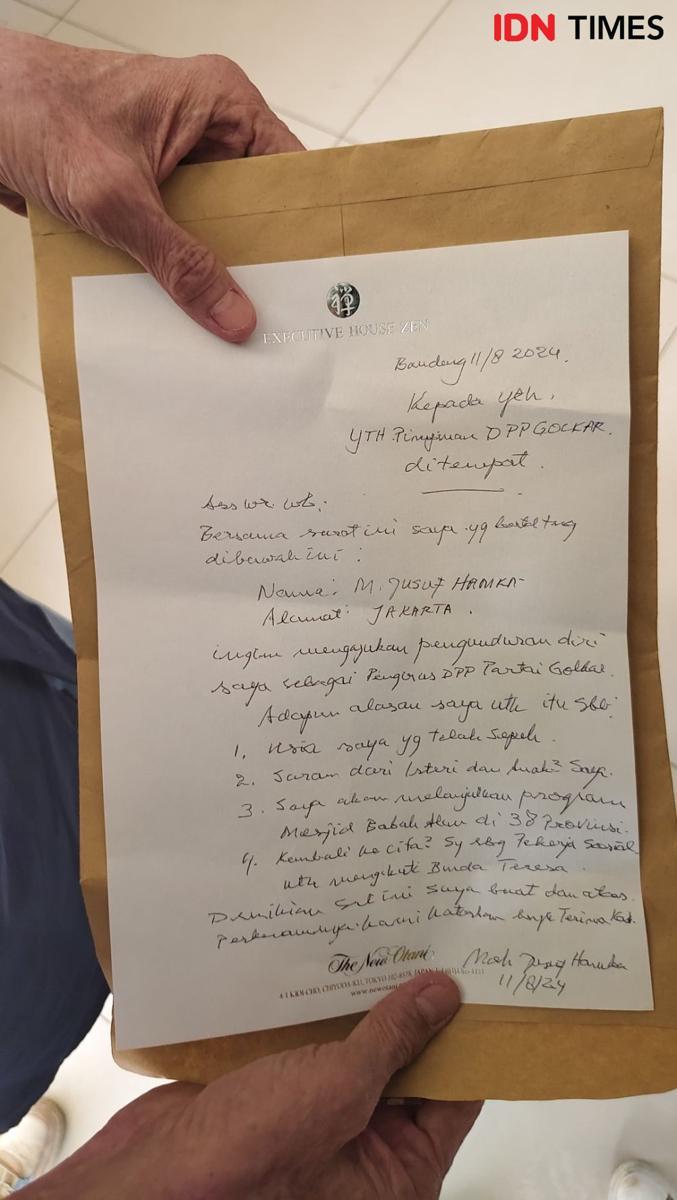 IDN TIMES
禅
EXECUTIVE HOUSE ZEN
Bandung 11/8 2024.
Kepada yth,
YTH. Pimpinan DPP GOLKAR.
ditempat.
Ass wr wb,
Bersama surat ini saya yg
dibawah ini :
Nama: M. JUSUF HAMKA
Alamat: JAKARTA.
ingin mengajukan pengunduran diri
saya sebagai Pengurus DPP Partai Golkar.
Adapun alasan saya utk itu sbb:
1. Usia saya yg telah sepuh.
2. Saran dari Isteri dan Anak² Saya.
3. Saya akan melanjutkan program
Mesjid Babah Alun di 38 Provinsi.
4. Kembali ke cita² Sy sbg Pekerja Sosial
utk mengikuti Bunda Teresa.
Demikian Srt ini saya buat dan atas
Perkenannya kami haturkan Terima Kasih.
The New Otani
4-1 KIOI-CHO, CHIYODA-KU, TOKYO 102-8578 JAPAN
Moh Jusuf Hamka
11/8/24